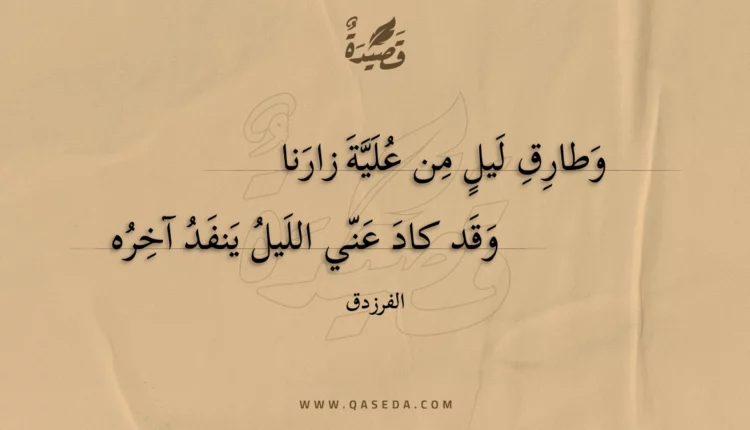 قَصِيْدَةٌ
وَطارِقِ لَيلٍ مِن عُلَيَّةَ زارَنا
وَقَد كادَ عَنّي اللَيلُ يَنفَدُ آخِرُه
الفرزدق
WWW.QASEDA.COM